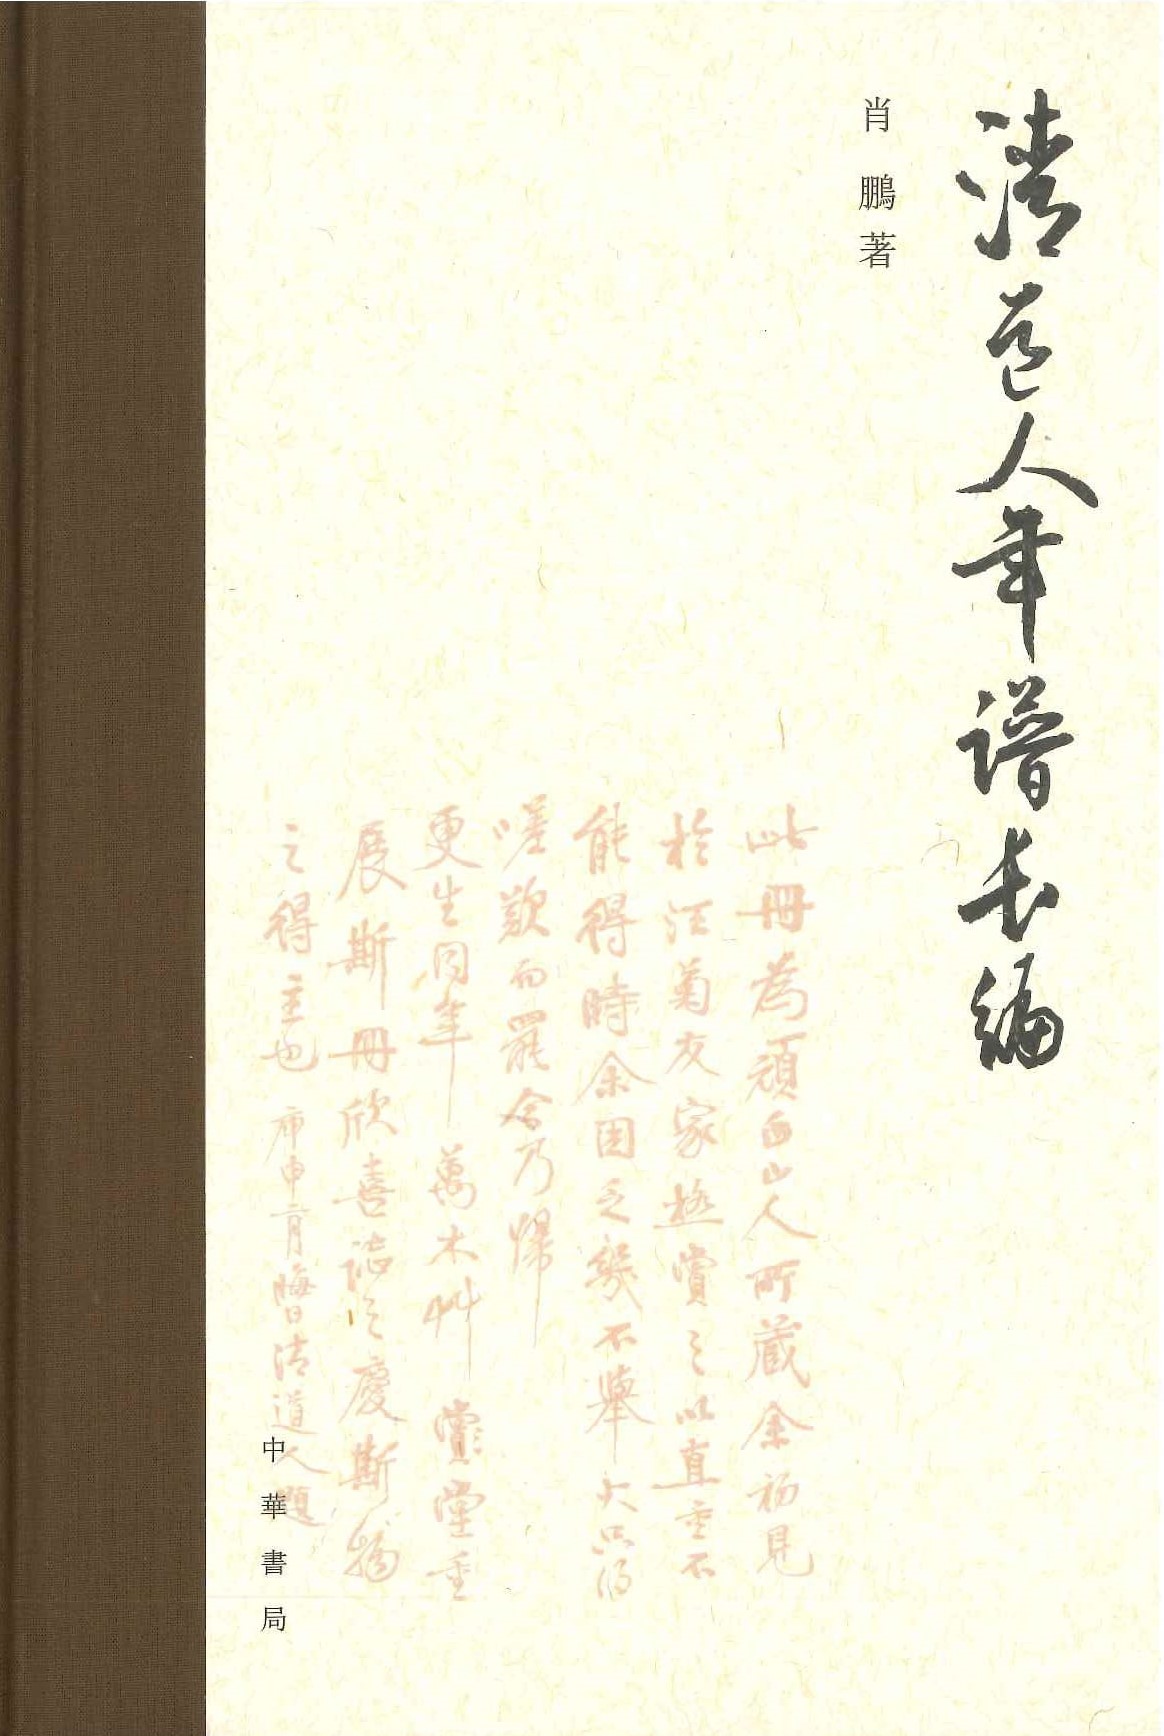 清道人年谱长编
肖鵬著
此冊為頑白山人所藏余初見
於江菊友家極賞之以直重不
能得時余困乏幾不舉火只得
嗟歎而罷今乃歸
更生同年萬木艸 堂重
展斯冊欣喜誌之慶斯
之得主也 庚申二月晦日清道人題
中華書局